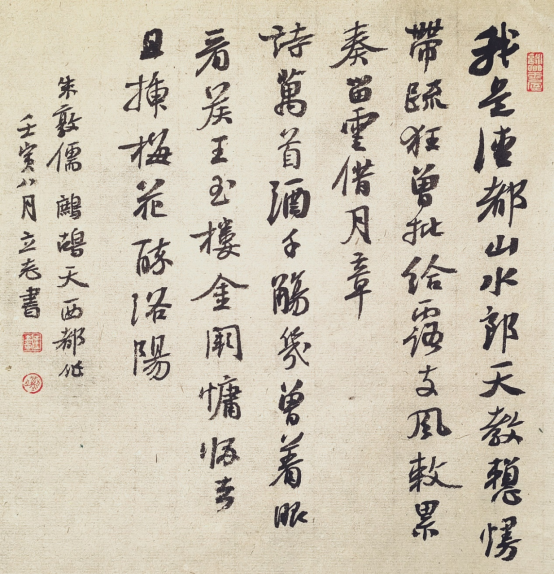 我是清都山水郎天教懶慢
帶疏狂曾批給露支風敕累
奏留雲借月章
詩萬首酒千觴幾曾着眼
看侯王玉樓金闕慵歸去
且插梅花醉洛陽
朱敦儒 鷓鴣天西都作
壬寅八月立書